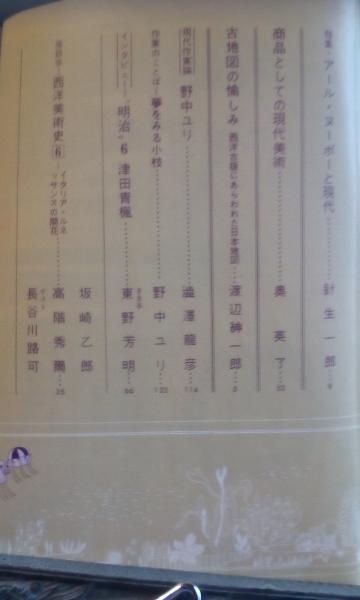 特集・アール・ヌーボーと現代……針生一郎…9
商品としての現代美術……奥英了…22
古地図の愉しみ 西洋古版にあらわれた日本地図…渡辺紳一郎…5
現代作家論 野中ユリ……澁澤龍彦…114
作家のことば―夢をみる小枝……野中ユリ…122
インタビュー "明治" 6 津田青楓……きき手 東野芳明…66
座談会・西洋美術史[6]―イタリア・ルネッサンスの開花……高階秀爾…25
坂崎乙郎
ゲスト 長谷川路可